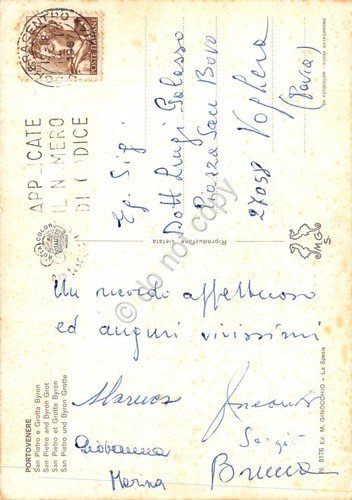 APPLICATE
IL NUMERO
DI CODICE
Eg. Sig.
Dott Luigi Galasso
Piazza San Bovo
27058 Voghera
(Pavia)
Riproduzione vietata
MG
S.
Un ricordo affettuoso
ed auguri vivissimi
Giovanna
Marina
Sergio
PORTOVENERE
San Pietro e Grotta Byron
San Pietro and Byron Grot
San Pietro et Grotte Byron
San Pietro und Byron Grotte
N. 9176 Ed. M. GINOCCHIO - La Spezia
do not copy